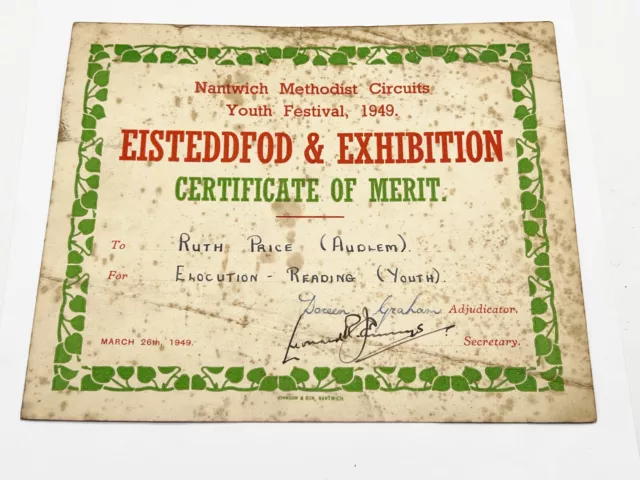 Nantwich Methodist Circuits
Youth Festival, 1949.
EISTEDDFOD & EXHIBITION
CERTIFICATE OF MERIT.
To Ruth Price (Audlem).
For Elocution - Reading (Youth).
Doreen Graham Adjudicator.
MARCH 26th, 1949. Leonard R. Jennings Secretary.
JOHNSON & SON, NANTWICH